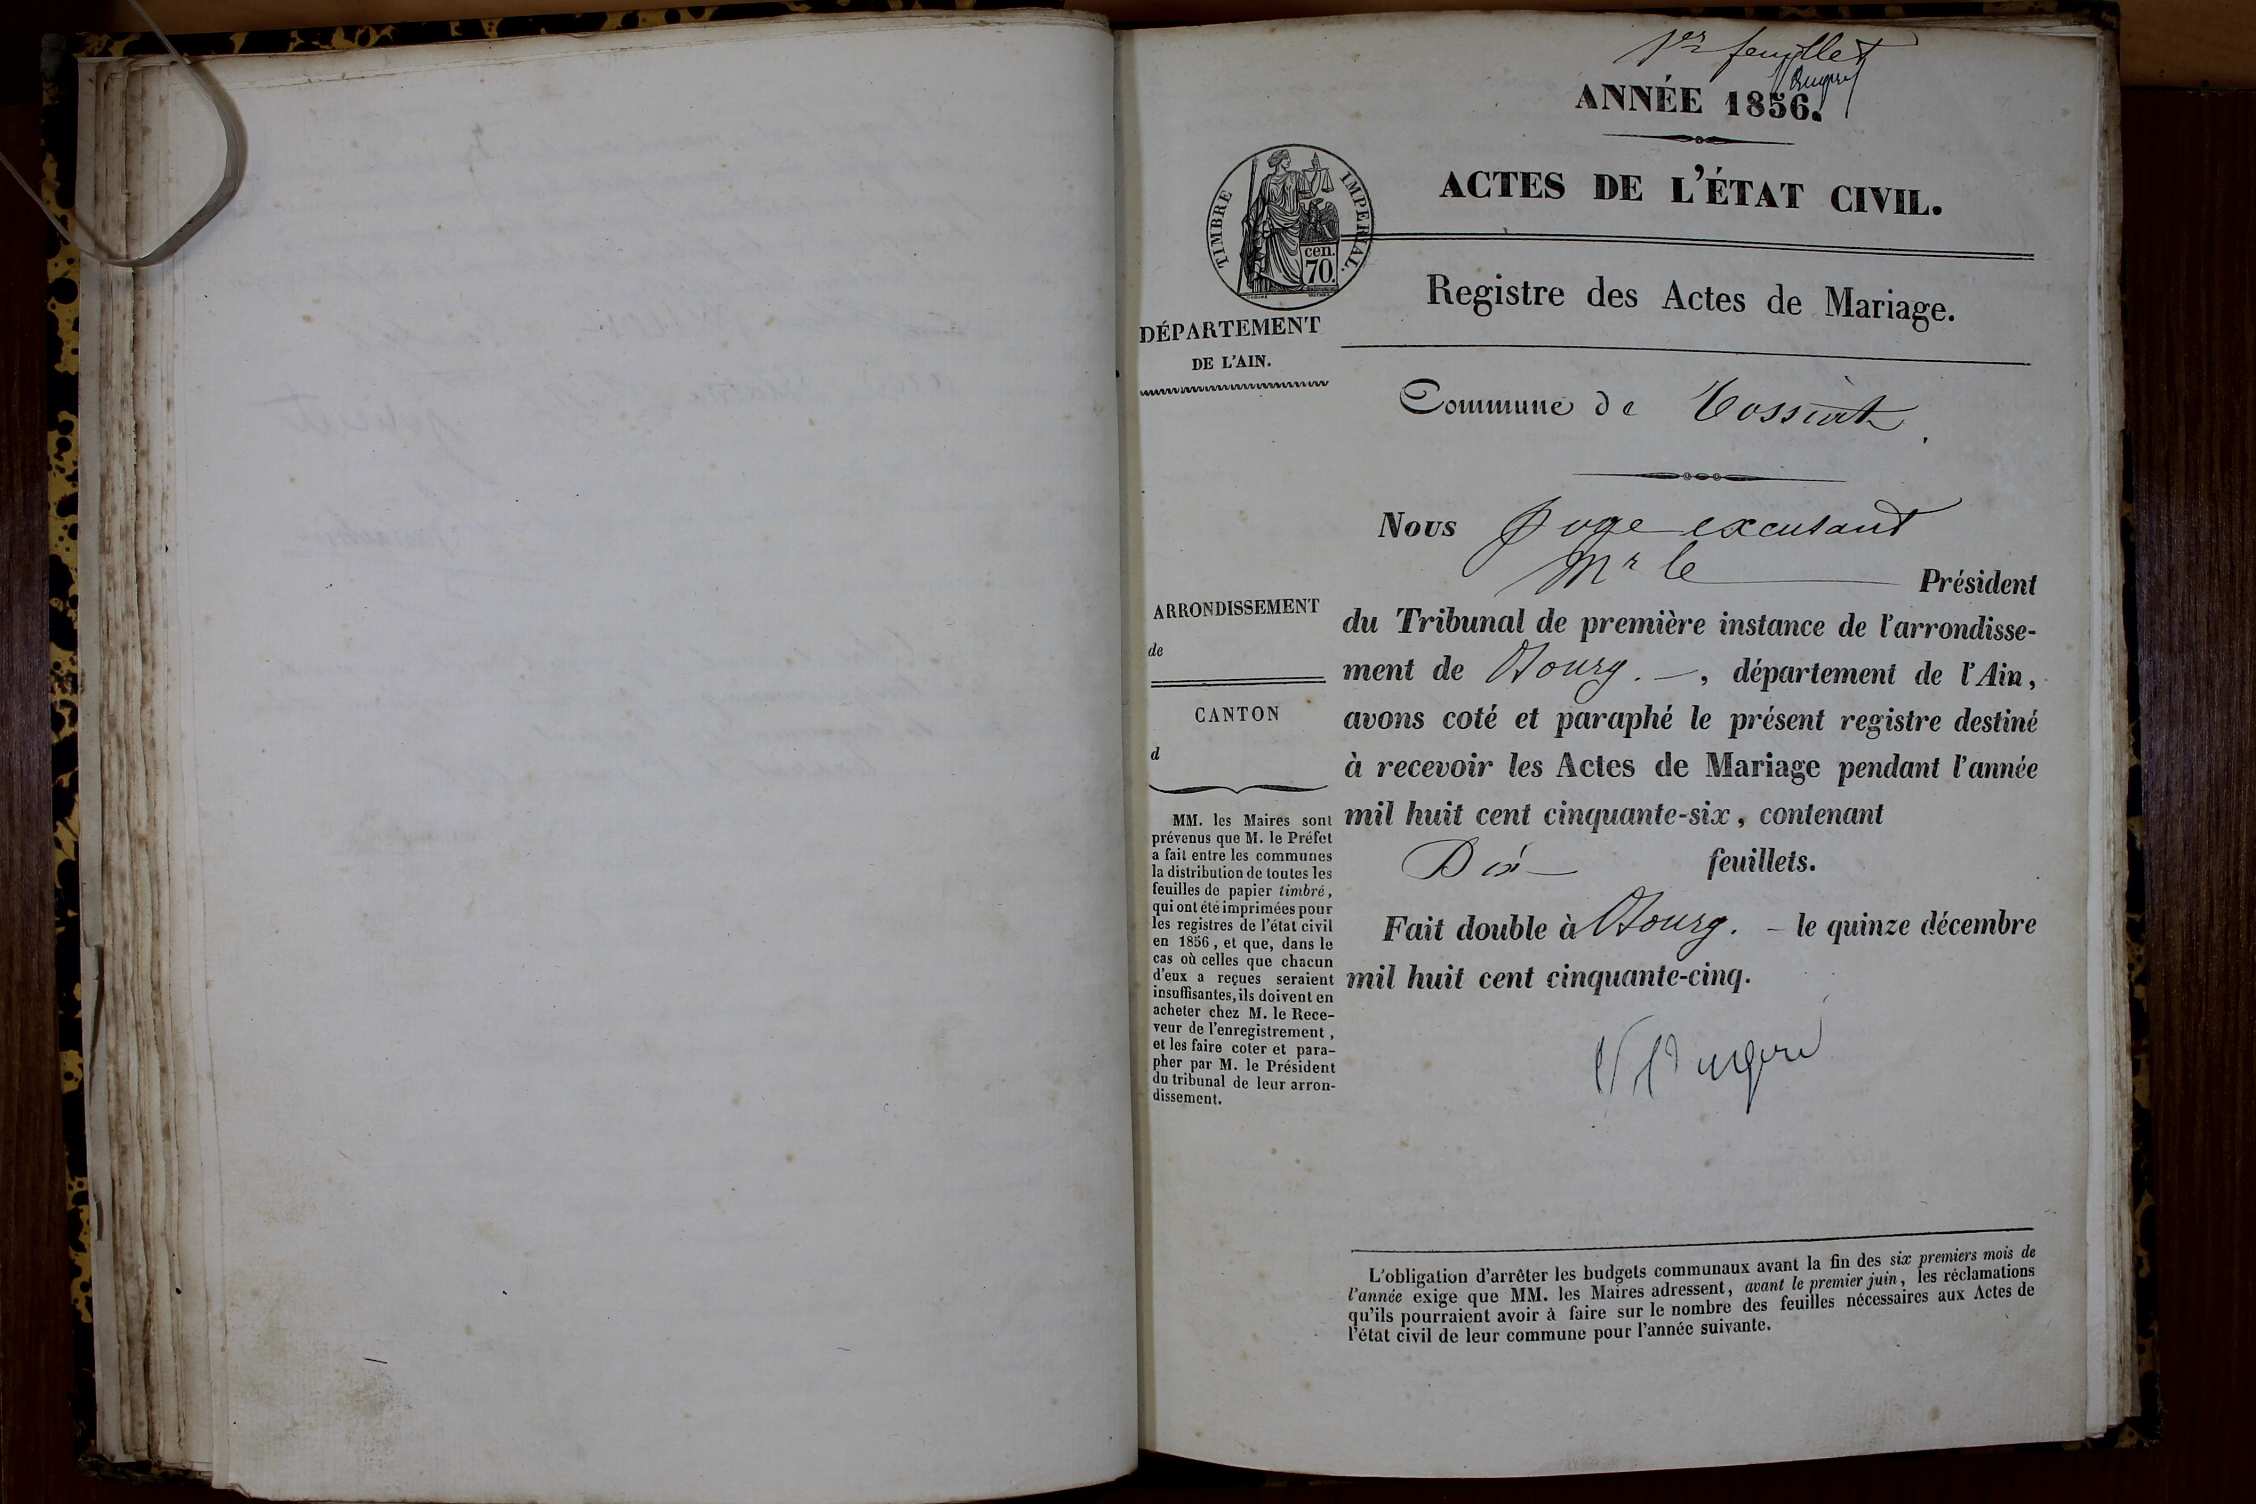 1er feuillet
ANNÉE 1856.
ACTES DE L'ÉTAT CIVIL.
TIMBRE IMPERIAL.
cen.
70.
Registre des Actes de Mariage.
DÉPARTEMENT
DE L'AIN.
Commune de Tossiat
Nous Juge excusant
Mr le Président
du Tribunal de première instance de l'arrondisse-
ment de Bourg. —, département de l'Ain,
avons coté et paraphé le présent registre destiné
à recevoir les Actes de Mariage pendant l'année
mil huit cent cinquante-six, contenant
Dix feuillets.
Fait double à Bourg. - le quinze décembre
mil huit cent cinquante-cinq.
ARRONDISSEMENT
de
CANTON
d
MM. les Maires sont
prévenus que M. le Préfet
a fait entre les communes
la distribution de toutes les
feuilles de papier timbré,
qui ont été imprimées pour
les registres de l'état civil
en 1856, et que, dans le
cas où celles que chacun
d'eux a reçues seraient
insuffisantes, ils doivent en
acheter chez M. le Rece-
veur de l'enregistrement,
et les faire coter et para-
pher par M. le Président
du tribunal de leur arron-
dissement.
L'obligation d'arrêter les budgets communaux avant la fin des six premiers mois de
l'année exige que MM. les Maires adressent, avant le premier juin, les réclamations
qu'ils pourraient avoir à faire sur le nombre des feuilles nécessaires aux Actes de
l'état civil de leur commune pour l'année suivante.